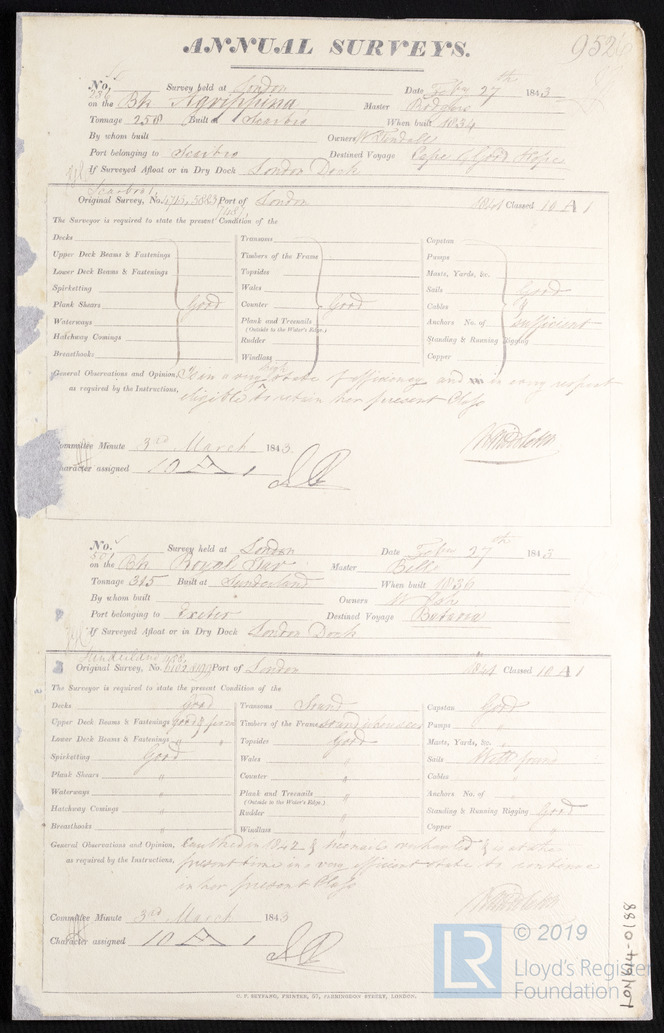 ANNUAL SURVEYS.
No. 286 Survey held at London Date Feby 27th 1843
on the Bk Agrippina Master Rodgers
Tonnage 258 Built at Scarbro When built 1834
By whom built Owners W Tindall
Port belonging to Scarbro Destined Voyage Cape of Good Hope
If Surveyed Afloat or in Dry Dock London Dock
Scarbro
Original Survey, No. Port of London 1841 Classed 10 A 1
The Surveyor is required to state the present Condition of the
Decks Transoms Capstan
Upper Deck Beams & Fastenings Timbers of the Frame Pumps
Lower Deck Beams & Fastenings Topsides Masts, Yards, &c.
Spirketting Wales Sails Good
Plank Shears Good Counter Good Cables &
Waterways Plank and Treenails Anchors No. of Sufficient
(Outside to the Water's Edge.)
Hatchway Comings Rudder Standing & Running Rigging
Breasthooks Windlass Copper
General Observations and Opinion, Is in a very high state of efficiency and is in every respect
as required by the Instructions, eligible to retain her present Class
Committee Minute 3rd March 1843
Character assigned 10 A 1
No. Survey held at London Date Feby 27th 1843
on the Bk Royal Saxon Master Bell
Tonnage 315 Built at Sunderland When built 1836
By whom built Owners W
Port belonging to Exeter Destined Voyage Batavia
If Surveyed Afloat or in Dry Dock London Dock
Sunderland
Original Survey, No. Port of London 1841 Classed 10 A 1
The Surveyor is required to state the present Condition of the
Decks Good Transoms Sound Capstan Good
Upper Deck Beams & Fastenings Good & firm Timbers of the Frame Sound where seen Pumps "
Lower Deck Beams & Fastenings " " Topsides Good Masts, Yards, &c. "
Spirketting Good Wales " Sails Well found
Plank Shears " Counter " Cables
Waterways " Plank and Treenails " Anchors No. of
(Outside to the Water's Edge.)
Hatchway Comings " Rudder " Standing & Running Rigging Good
Breasthooks " Windlass " Copper
General Observations and Opinion, Caulked in 1842 & overhauled & is at the
as required by the Instructions, present time in a very efficient state to continue
in her present Class
Committee Minute 3rd March 1843
Character assigned 10 A 1
LON614-0188
LR © 2019
Lloyd's Register
Foundation